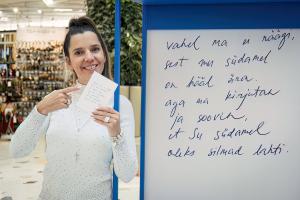 vahel ma ei räägi,
sest mu südamel
on hääl ära.
aga ma kirjutan
ja soovin,
et Su südamel
oleks silmad lahti.